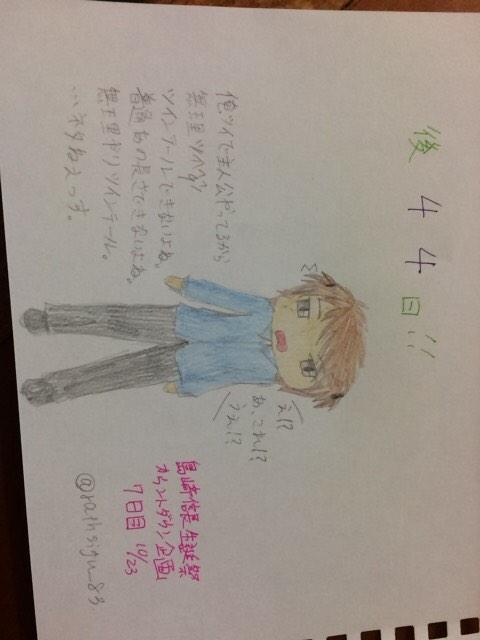 後44日!!
俺ツイで主人公やってるから
無理ツイダ
ツインテールできないよね。
普通あの長さできないよね。
無理ヤリツインテール。
…ネタねえっす。
え!?
あ、これ!?
うえ!?
島崎信長生誕祭
カウントダウン企画
7日目 10/23